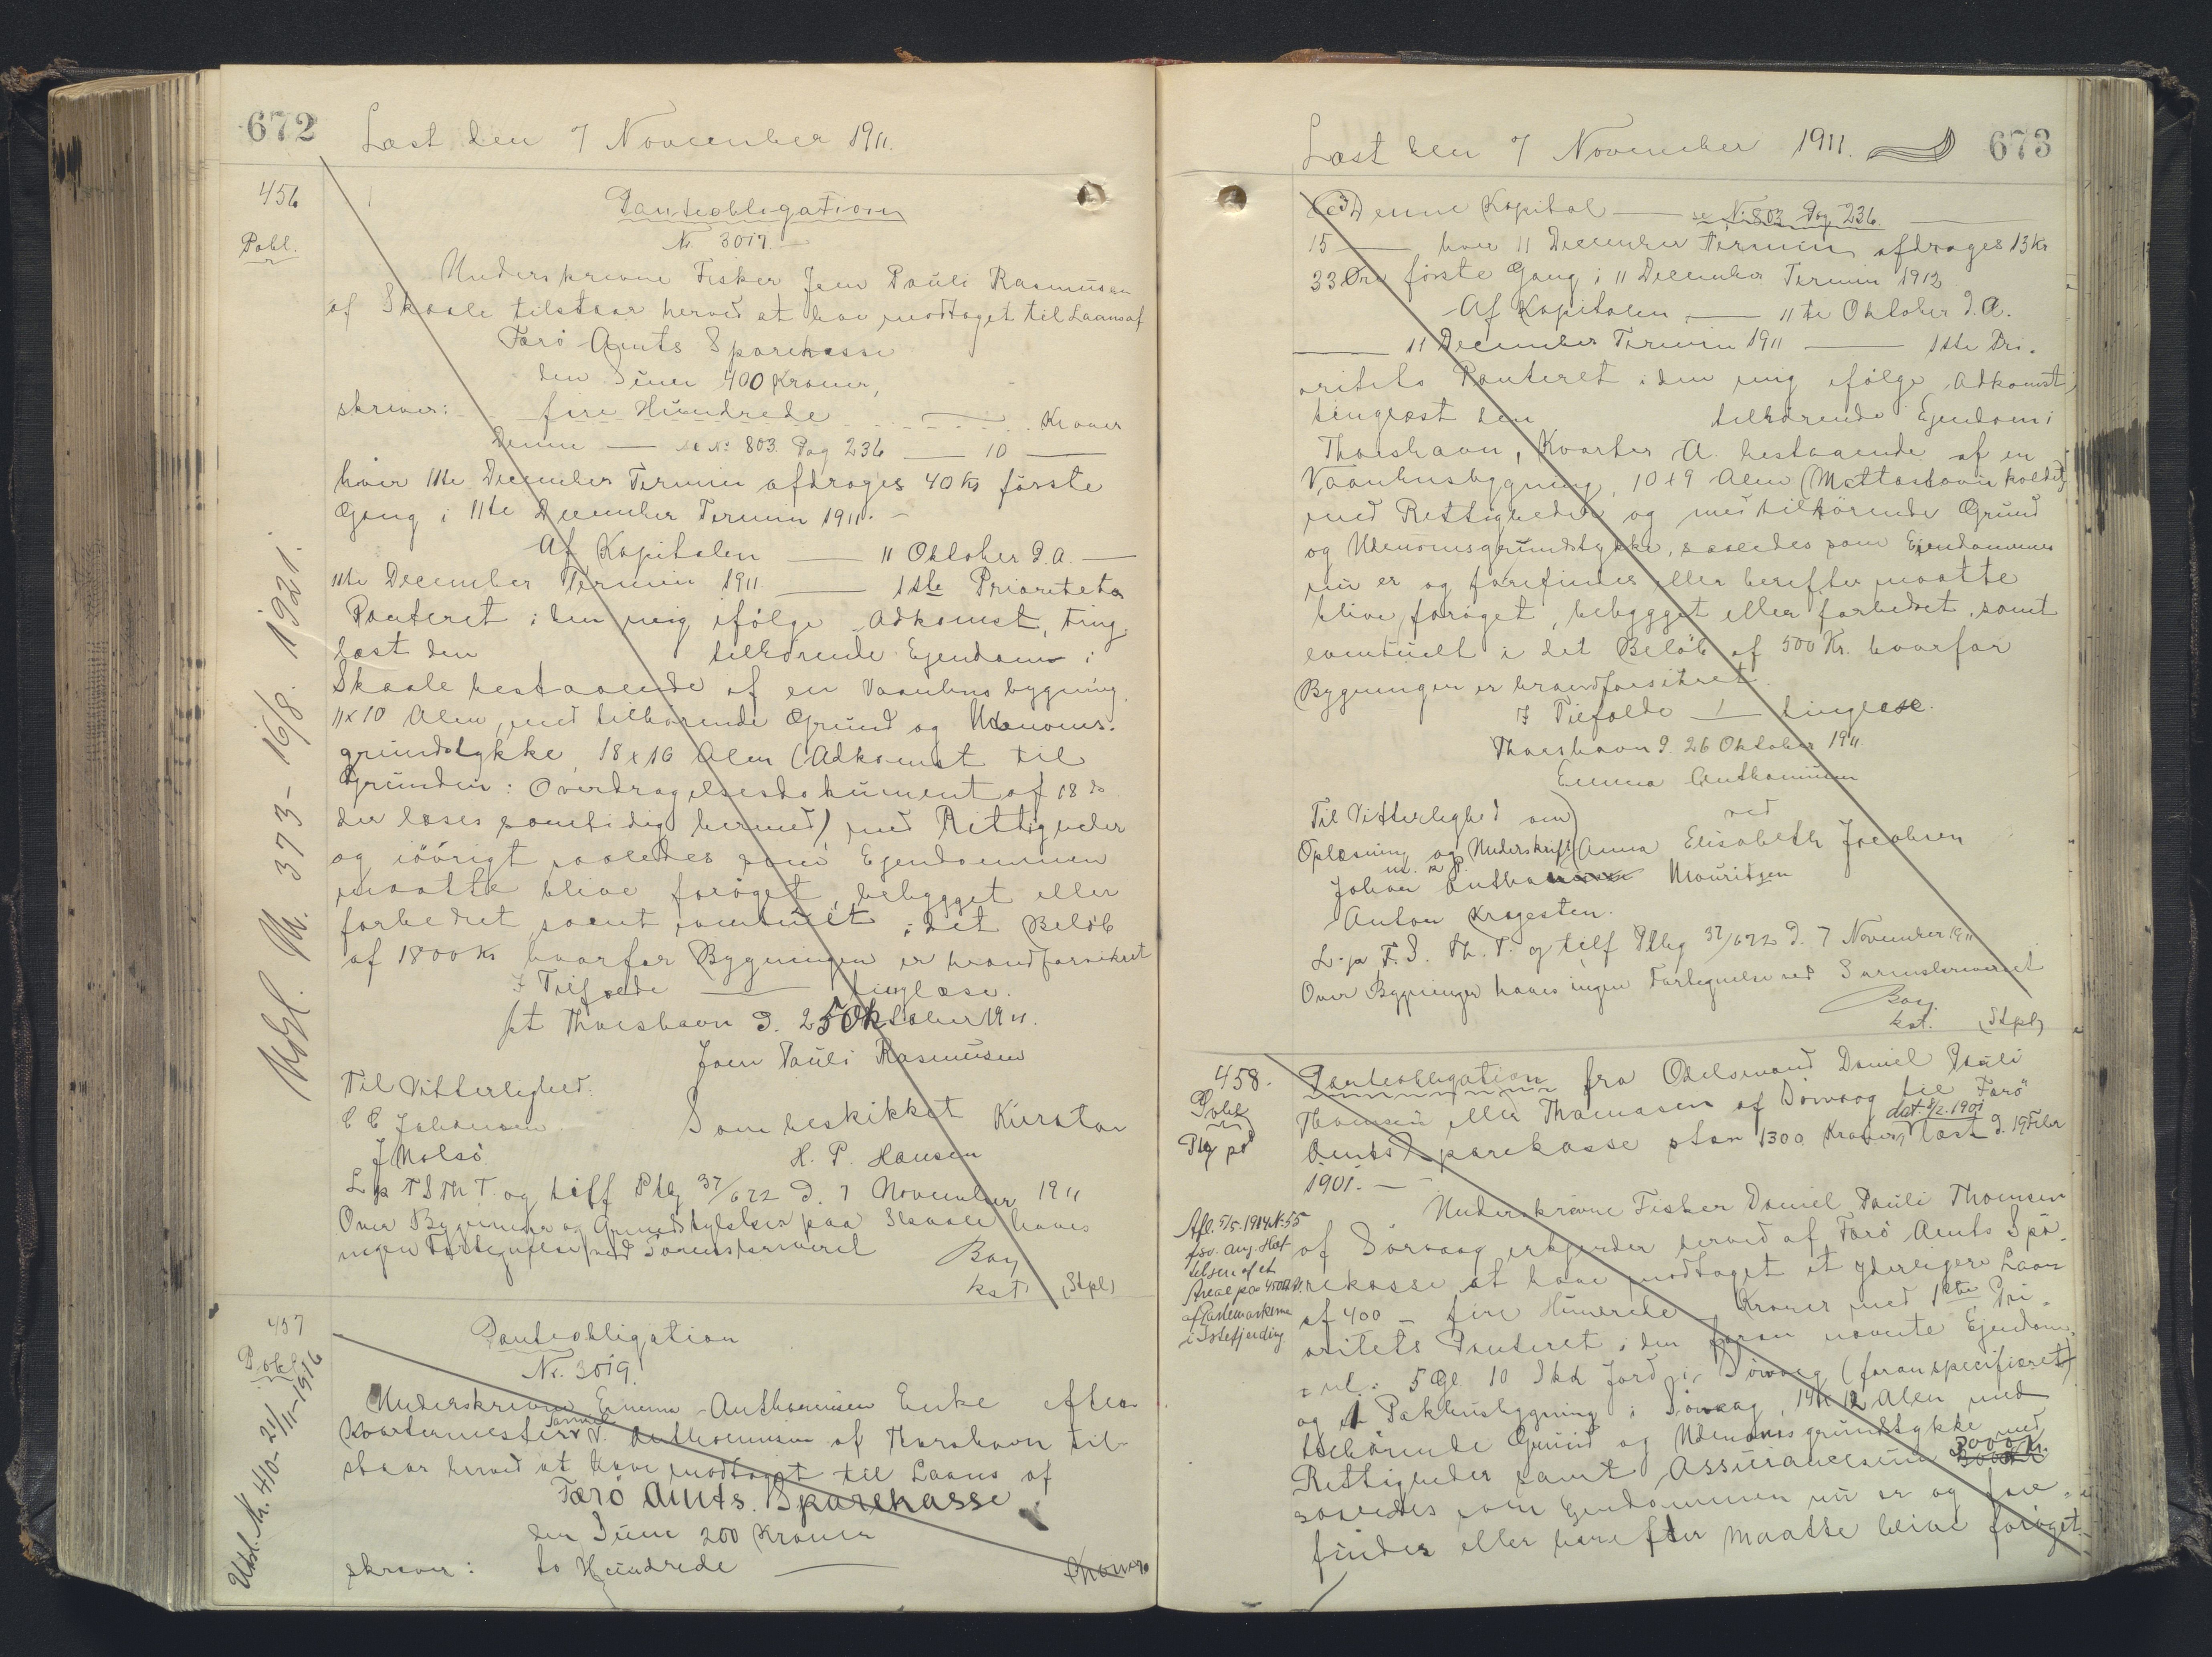 672
Læst den 7 November 1911.
456
Pobl.
Panteobligation
Nr. 3017.
Underskrevne Fisker Joen Pauli Rasmussen
af Skaale tilstaar herved at have modtaget til Laans af
Færö Amts Sparekasse
den Sum 400 Kroner,
skriver: fire Hundrede Kroner
Denne — se No 803. Pag 236 — 10 —
hver 11te December Termin afdrages 40 Kr første
Gang i 11te December Termin 1911. -
Af Kapitalen — 11 Oktober d.A. —
11te December Termin 1911. — 1ste Prioritets
Panteret i den mig ifølge Adkomst, ting-
læst den tilhørende Ejendom i
Skaale bestaaende af en Vaanhusbygning
11x10 Alen, med tilhørende Grund og Udenoms-
grundstykke, 18x16 Alen (Adkomst til
Grunden: Overdragelsesdokument af 18 ds.
der læses samtidig hermed) med Rettigheder
og iövrigt saaledes som Ejendommen
maatte blive forøget, bebygget eller
forbedret samt eventuelt i det Beløb
af 1800 Kr hvorfor Bygningen er brandforsikret
I Tilfælde — tinglæse.
pt Thorshavn d. 25 Oktober 1911.
Joen Pauli Rasmussen
Til Vitterlighed.
C C Johansen Som beskikket Kurator
J Molsö H. P. Hansen
L p F S Th T. og tilf Ptbg 37/672 d. 7 November 1911
Over Bygninger og Grundstykker paa Skaale haves
ingen Fortegnelse ved Sorenskriveriet
Bay
kst. (Stpl)
Udsl. Nr. 373 - 16/8. 1921.
457
Pobl
Udsl. Nr. 410 - 21/11-1916
Panteobligation
Nr. 3019.
Underskrevne Emma Anthoniusen Enke efter
Kvartermester Samuel V. Anthoniusen af Thorshavn til-
staar herved at have modtaget til Laans af
Færö Amts Sparekasse
den Sum 200 Kroner
skriver: to Hundrede — Kroner
Læst den 7 November 1911. 673
Denne Kapital — se No 803 Pag. 236. —
15 — hver 11 December Termin afdrages 13 Kr
33 Øre første Gang i 11 December Termin 1912
Af Kapitalen — 11te Oktober d.A.
— 11 December Termin 1911 — 1ste Pri-
oritets Panteret i den mig ifølge Adkomst
tinglæst den tilhørende Ejendom i
Thorshavn, Kvarter A. bestaaende af en
Vaanhusbygning, 10x9 Alen (Mettastovu kaldet)
med Rettigheder og med tilhörende Grund
og Udenomsgrundstykke, saaledes som Ejendommen
nu er og forefindes eller herefter maatte
blive forøget, bebygget eller forbedret, samt
eventuelt i det Beløb af 500 Kr. hvorfor
Bygningen er brandforsikret.
I Tilfælde — tinglæse.
Thorshavn d. 26 Oktober 1911.
Emma Anthoniusen
ved
Til Vitterlighed om
Oplæsning og Underskrift Anna Elisabeth Jacobsen
m. p. P.
Johan Mouritzen
Anton Kragesten.
L. p F. S. Th. T. og tilf Ptbg 37/672 d. 7 November 1911
Over Bygninger haves ingen Fortegnelse ved Sorenskriveriet
Bay
kst. (Stpl)
458.
Pobl
Ptg paa
Panteobligation fra Odelsmand Daniel Pauli
Thomsen eller Thomasen af Sörvaag til Færö
Amts Sparekasse stor 1300 Kroner, dat. 8/2.1901 læst d. 19 Febr
1901. —
Underskrevne Fisker Daniel Pauli Thomsen
af Sörvaag erkjender herved af Færö Amts Spa-
rekasse at have modtaget et yderligere Laan
af 400 — fire Hundrede Kroner med 1ste Pri-
oritets Panteret i den foran nævnte Ejendom
nl: 5 Gl. 10 Skd Jord i Sörvaag (foran specificeret)
og 1 Pakhusbygning i Sörvaag, 14 x 12 Alen med
tilhörende Grund og Udenomsgrundstykke med
Rettigheder samt Assurancesum 3000 Kr.
saaledes som Ejendommen nu er og fore-
findes eller herefter maatte blive forøget
Afl. 5/5.1914 No 55
fsv. ang. Hæf
telsen af et
Areal paa 4500 Al.
af
i Østefjerding